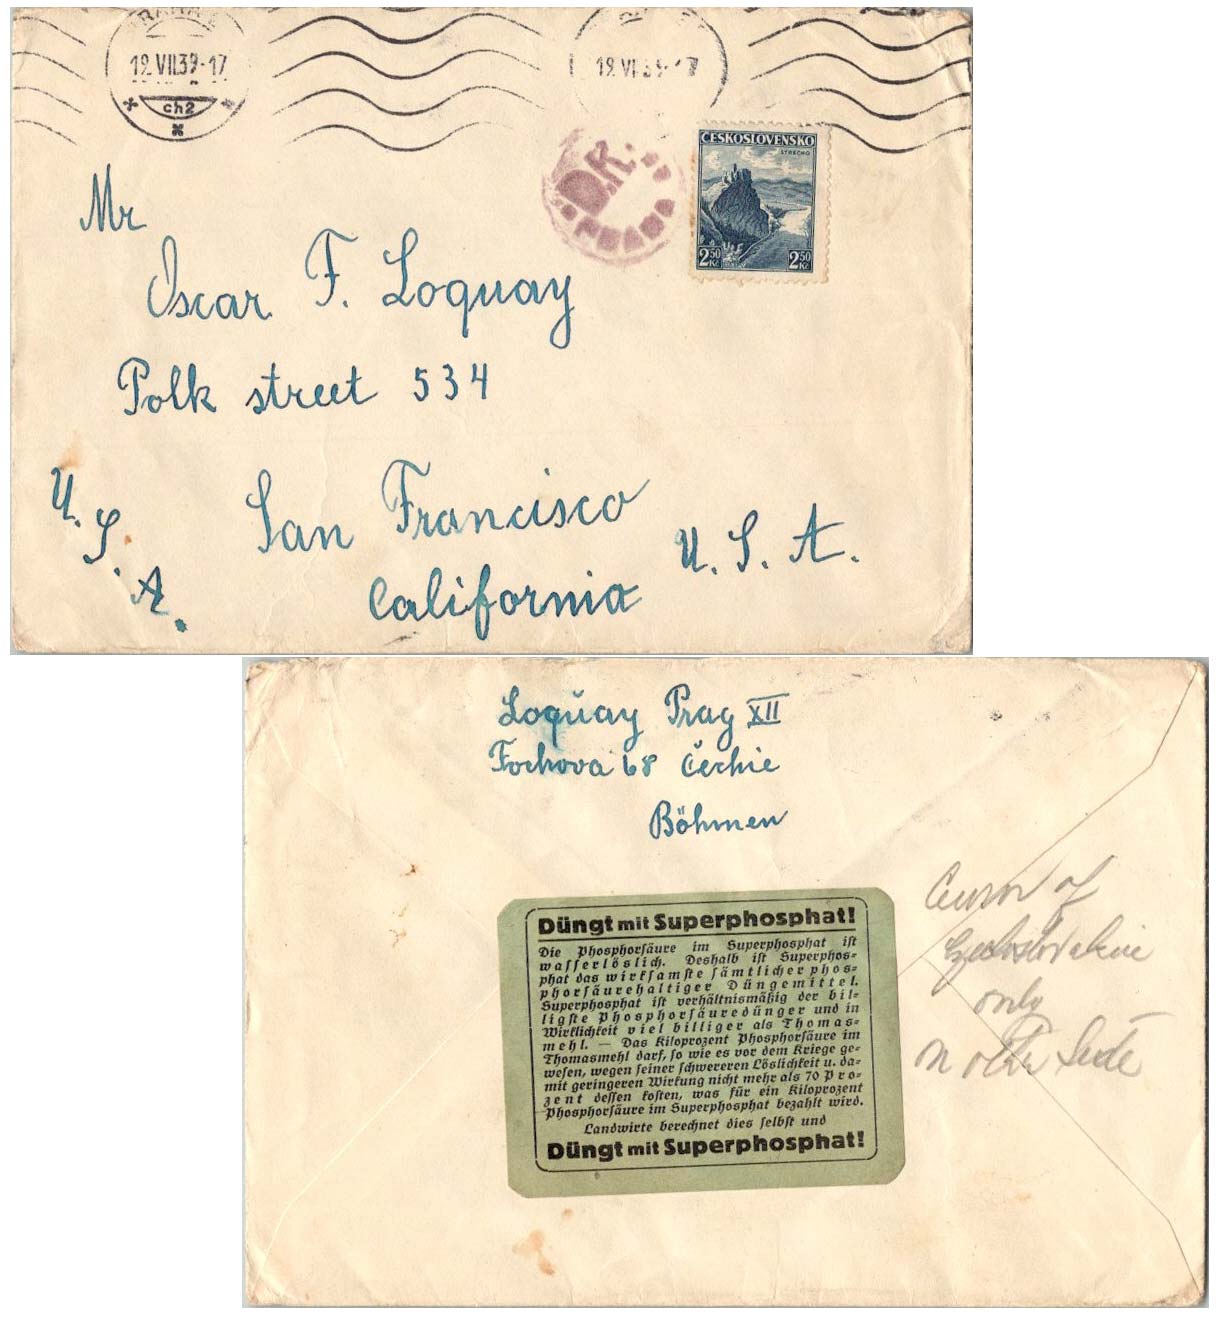 PRAHA
19.VII.39-17
ch2
19.VI.39-17
D.K.
ČESKOSLOVENSKO
STREČNO
2 50 Kč
2 50 Kč
Mr
Oscar F. Loquay
Polk street 534
San Francisco
California
U. S. A.
U. S. A.
Loquay Prag XII
Fochova 68 Čechie
Böhmen
Düngt mit Superphosphat!
Die Phosphorsäure im Superphosphat ist
wasserlöslich. Deshalb ist Superphos-
phat das wirksamste sämtlicher phos-
phorsäurehaltiger Düngemittel.
Superphosphat ist verhältnismäßig der bil-
ligste Phosphorsäuredünger und in
Wirklichkeit viel billiger als Thomas-
mehl. — Das Kiloprozent Phosphorsäure im
Thomasmehl darf, so wie es vor dem Kriege ge-
wesen, wegen seiner schwereren Löslichkeit u. da-
mit geringeren Wirkung nicht mehr als 70 Pro-
zent dessen kosten, was für ein Kiloprozent
Phosphorsäure im Superphosphat bezahlt wird.
Landwirte berechnet dies selbst und
Düngt mit Superphosphat!
of
only